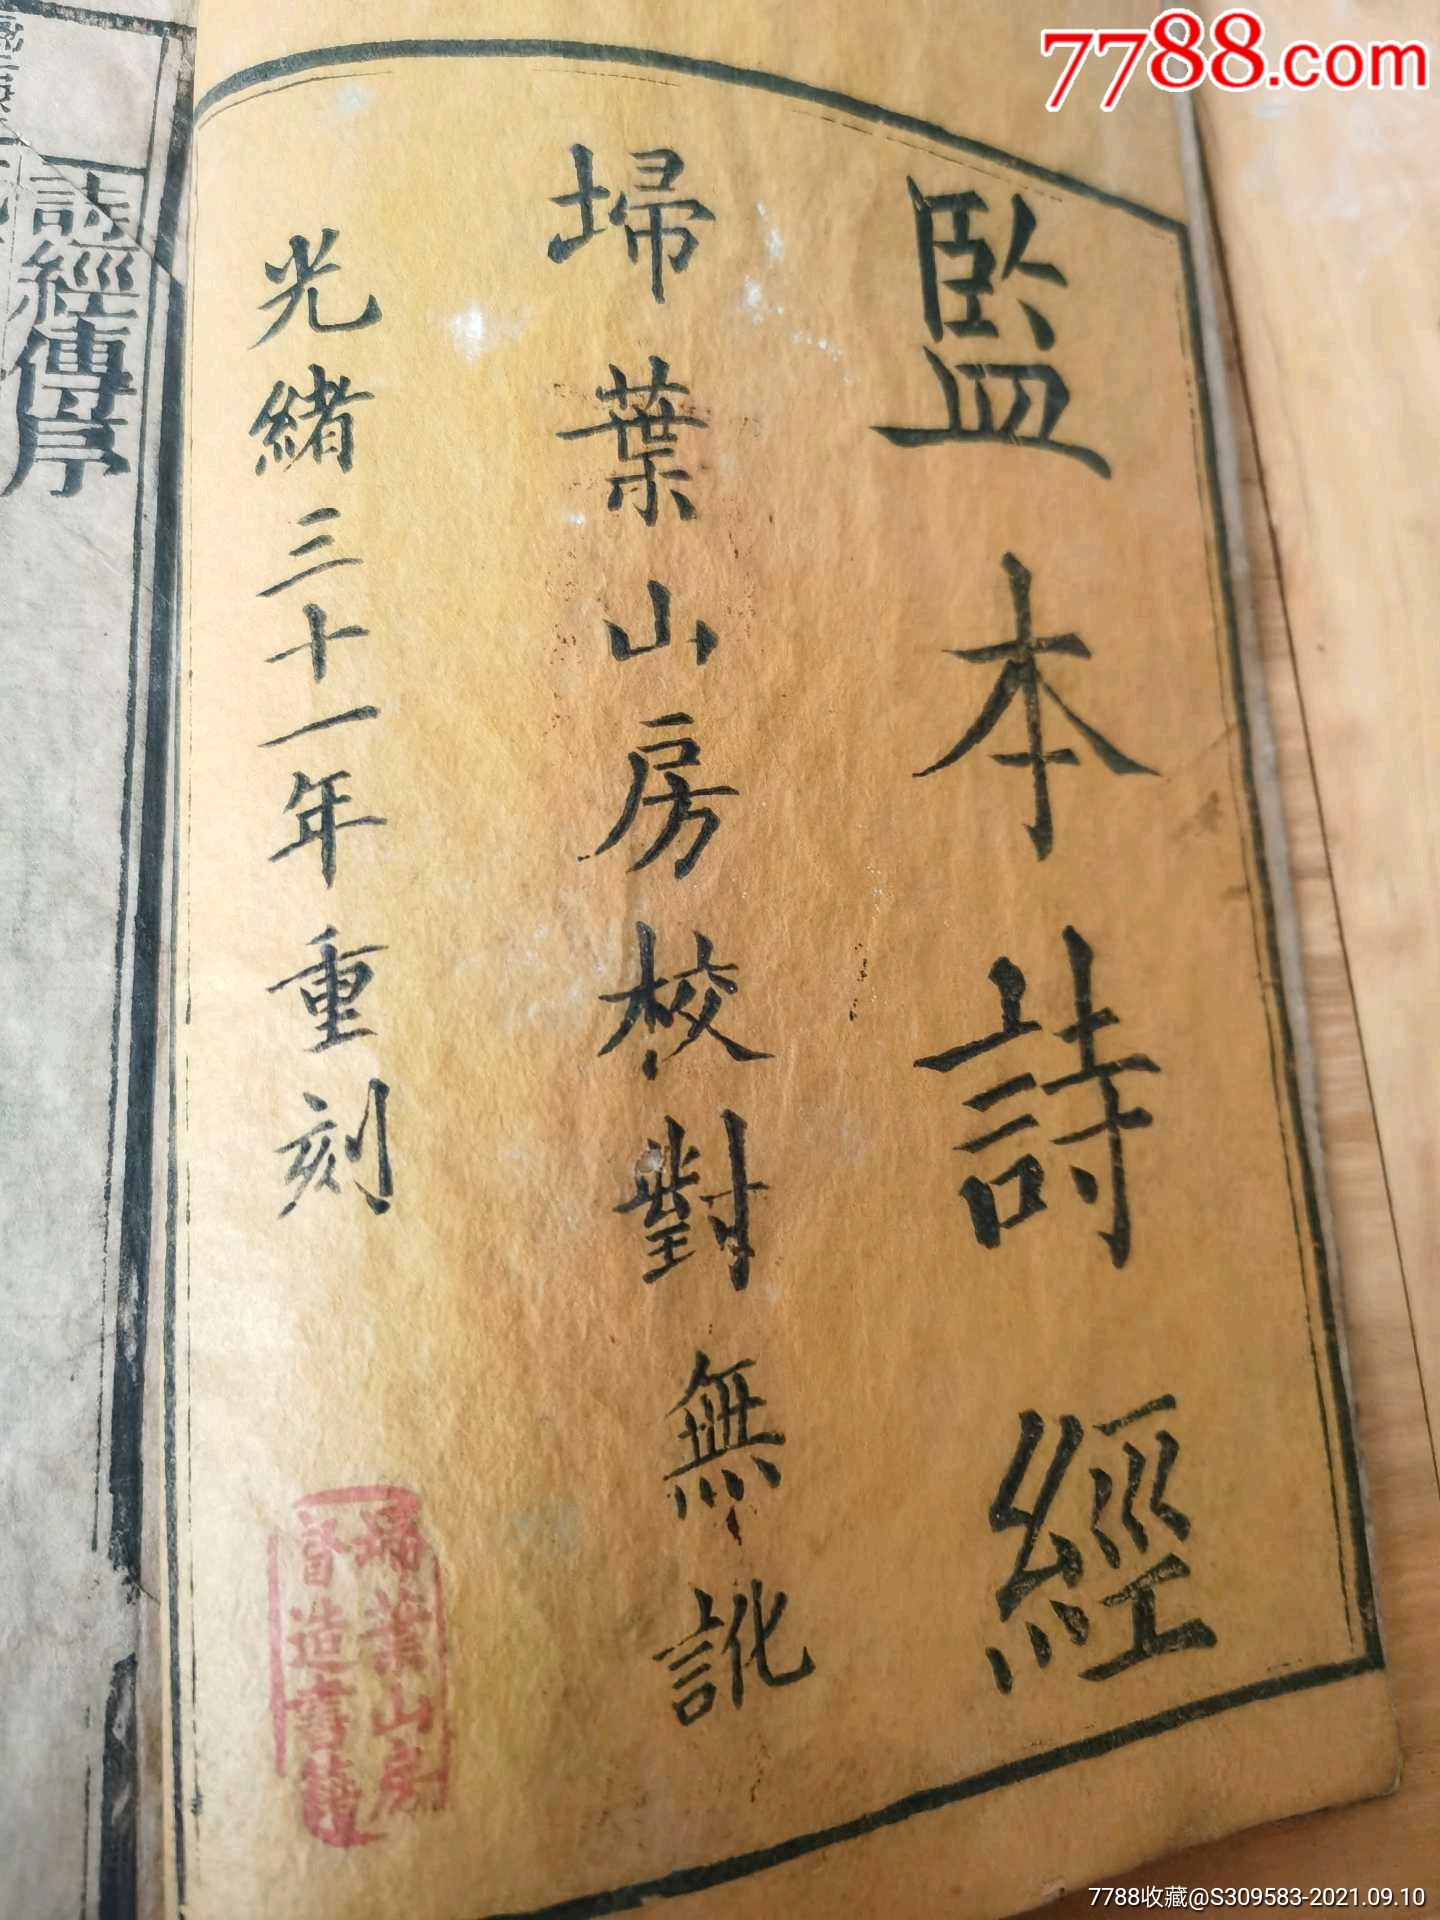 7788.com
監本詩經
埽葉山房校對無訛
光緒三十一年重刻
埽葉山房
督造書籍
詩經傳序
7788收藏@S309583-2021.09.10